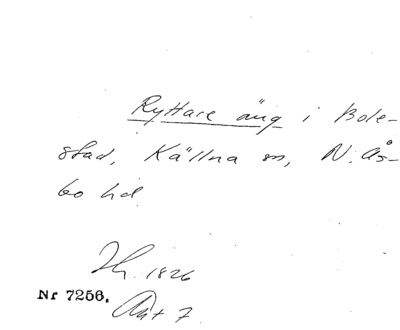 Ryttare äng i Bole-
stad, Källna sn, N. Ås-
bo hd
1826
Nr 7256.
Akt 7